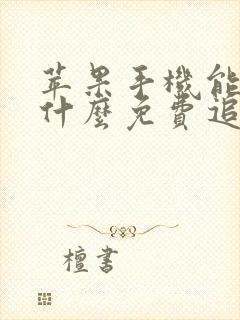 苹果手機能
什麼免費追
檀書